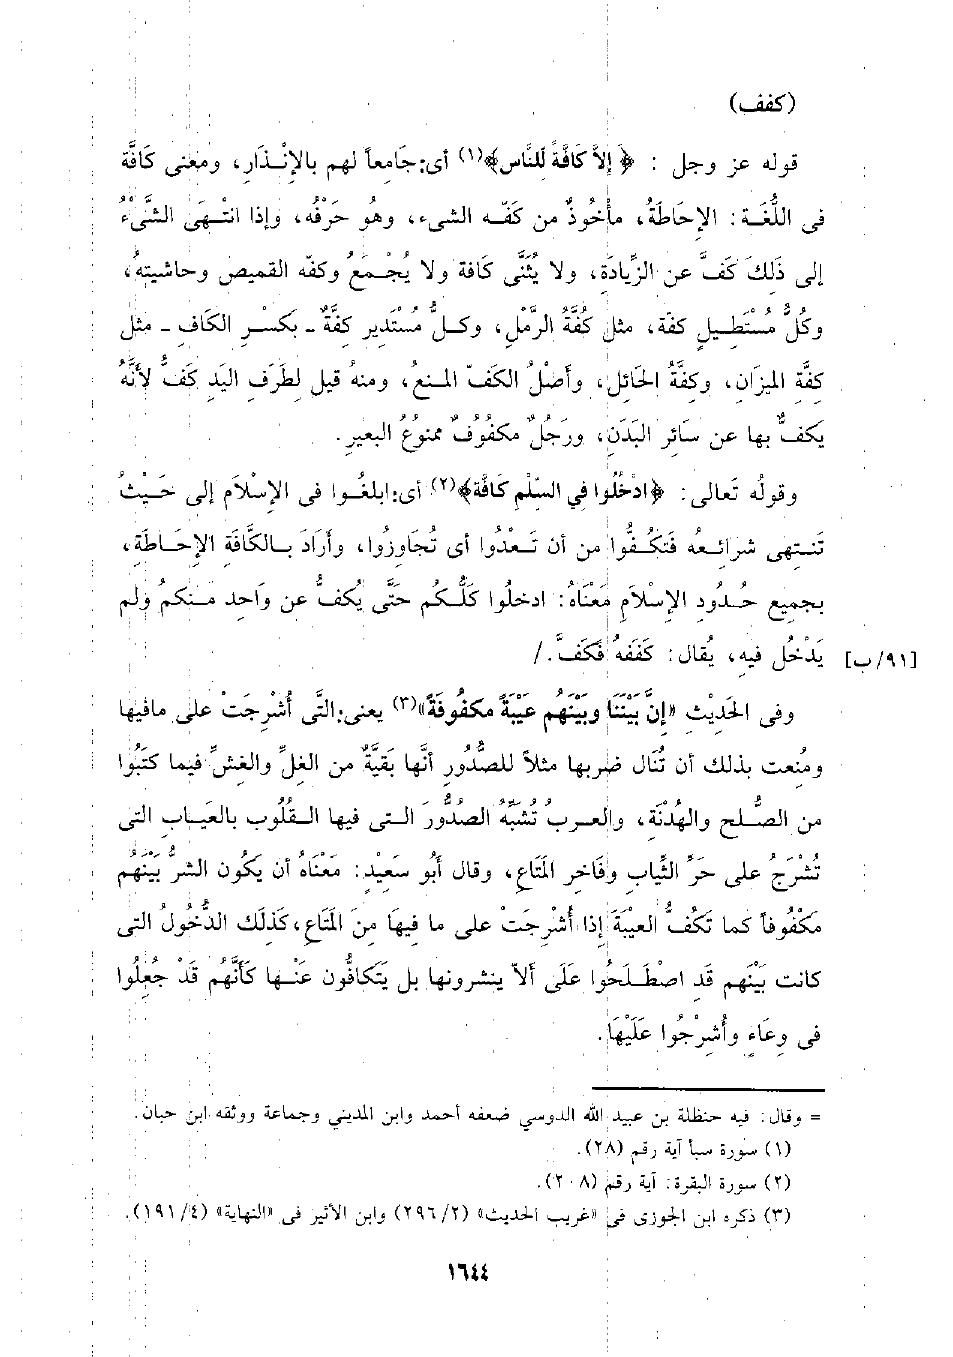 (كفف)
قوله عز وجل : ﴿إلاَّ كَافَّةً لِلنَّاسِ﴾(١) أى: جَامعاً لهم بالإنْذَار، ومعنى كَافَّة
فى اللُّغَة: الإحَاطَةُ، مأخُوذٌ من كَفّه الشىء، وهو حَرْفُه، وإذا انْتهَى الشَّىْءُ
إلى ذَلكَ كَفَّ عن الزِّيادَة، ولا يُثنَّى كَافة ولا يُجْمعُ وكفه القميص وحاشيتهُ،
وكُلُّ مُسْتَطِيلٍ كفة، مثل كُفَّةُ الرَّمْل، وكلُّ مُسْتَدير كِفَّةٌ ـ بكَسْرِ الكَافِ ـ مثل
كِفَّة الميزَان، وكفَّةُ الحَائل، وأَصْلُ الكَفّ المنعُ، ومنهُ قيل لطَرَفِ اليَد كَفٌّ لأنَّهُ
يَكفُّ بها عن سَائِرِ البَدَنِ، ورَجُلٌ مكفُوفٌ ممنوعُ البعيرِ.
وقولُه تَعالى: ﴿ادْخُلُوا فِي السّلْمِ كَافَّةً﴾(٢) أى: ابلغُوا فى الإسْلَام إلى حَيْثُ
تَنتهى شرائعُه فَتكُفُّوا من أن تَعْدُوا أى تُجاوِزوا، وأَرَادَ بالكَّافَة الإحَاطَة،
بجميع حُدُودِ الإسلَامِ مَعْنَاهُ: ادخلُوا كَلُّكم حَتَّى يُكفُّ عن وَاحد منكمُ ولم
يَدْخُل فيه، يُقال: كَفَفهُ فَكَفَّ./ [٩١/ب]
وفى الحَدِيث «إنَّ بَيْنَنَا وبَيْنَهُم عَيْبَةً مكفُوفَةً»(٣) يعنى: التَّى أُشْرِجَتْ على مافيها
ومُنعت بذلك أن تُنَال ضربها مثلاً للصُّدُورِ أنَّها بَقيَّةٌ من الغلِّ والغشّ فيما كتبُوا
من الصُّلح والهُدْنَة، والعربُ تُشبِّه الصُّدُورَ التى فيها القُلُوب بالعَياب التى
تُشْرَجُ على حَرِّ الثِّيابِ وفَاخرِ المَتَاع، وقال أَبُو سَعيْدٍ: مَعْنَاهُ أن يَكُون الشرُّ بَيْنَهُم
مكْفُوفاً كما تكَفُّ العيْبَة إذا أُشْرجَتْ على ما فِيهَا مِنَ المَتَاعِ، كَذَلكَ الدُّخُولُ التى
كانت بَيْنهم قَد اصْطَلَحُوا عَلَى ألاّ ينشرونها بل يتَكافُّون عنْها كأَنَّهُم قَدْ جُعلُوا
فى وعَاءٍ وأُشرِجُوا عَلَيْهَا.
= وقال: فيه حنظلة بن عبيد الله الدوسي ضعفه أحمد وابن المديني وجماعة ووثقه ابن حبان.
(١) سورة سبأ آية رقم (٢٨).
(٢) سورة البقرة: آية رقم (٢٠٨).
(٣) ذكره ابن الجوزى فى «غريب الحديث» (٢/ ٢٩٦) وابن الأثير فى «النهاية» (٤/ ١٩١).
١٦٤٤